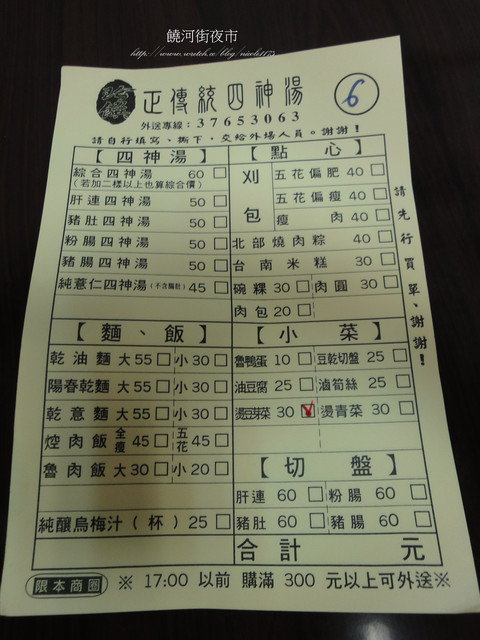 饒河街夜市
http://www.wretch.cc/blog/nicole1175
正傳統四神湯
6
外送專線：37653063
請自行填寫、撕下，交給外場人員。謝謝！
【四神湯】
綜合四神湯 60 □
(若加二樣以上也算綜合價)
肝連四神湯 50 □
豬肚四神湯 50 □
粉腸四神湯 50 □
豬腸四神湯 50 □
純薏仁四神湯(不含豬肚) 45 □
【點心】
刈包
五花偏肥 40 □
五花偏瘦 40 □
瘦肉 40 □
北部燒肉粽 40 □
台南米糕 30 □
碗粿 30 □ 肉圓 30 □
肉包 20 □
請先行買單、謝謝！
【麵、飯】
乾油麵 大 55 □ 小 30 □
陽春乾麵 大 55 □ 小 30 □
乾意麵 大 55 □ 小 30 □
焢肉飯 全瘦 45 □ 五花 45 □
魯肉飯 大 30 □ 小 20 □
純釀烏梅汁（杯）25 □
【小菜】
魯鴨蛋 10 □ 豆乾切盤 25 □
油豆腐 25 □ 滷筍絲 25 □
燙豆芽菜 30 ☑ 燙青菜 30 □
【切盤】
肝連 60 □ 粉腸 60 □
豬肚 60 □ 豬腸 60 □
合計 元
限本商圈 ※ 17:00 以前 購滿 300 元以上可外送※